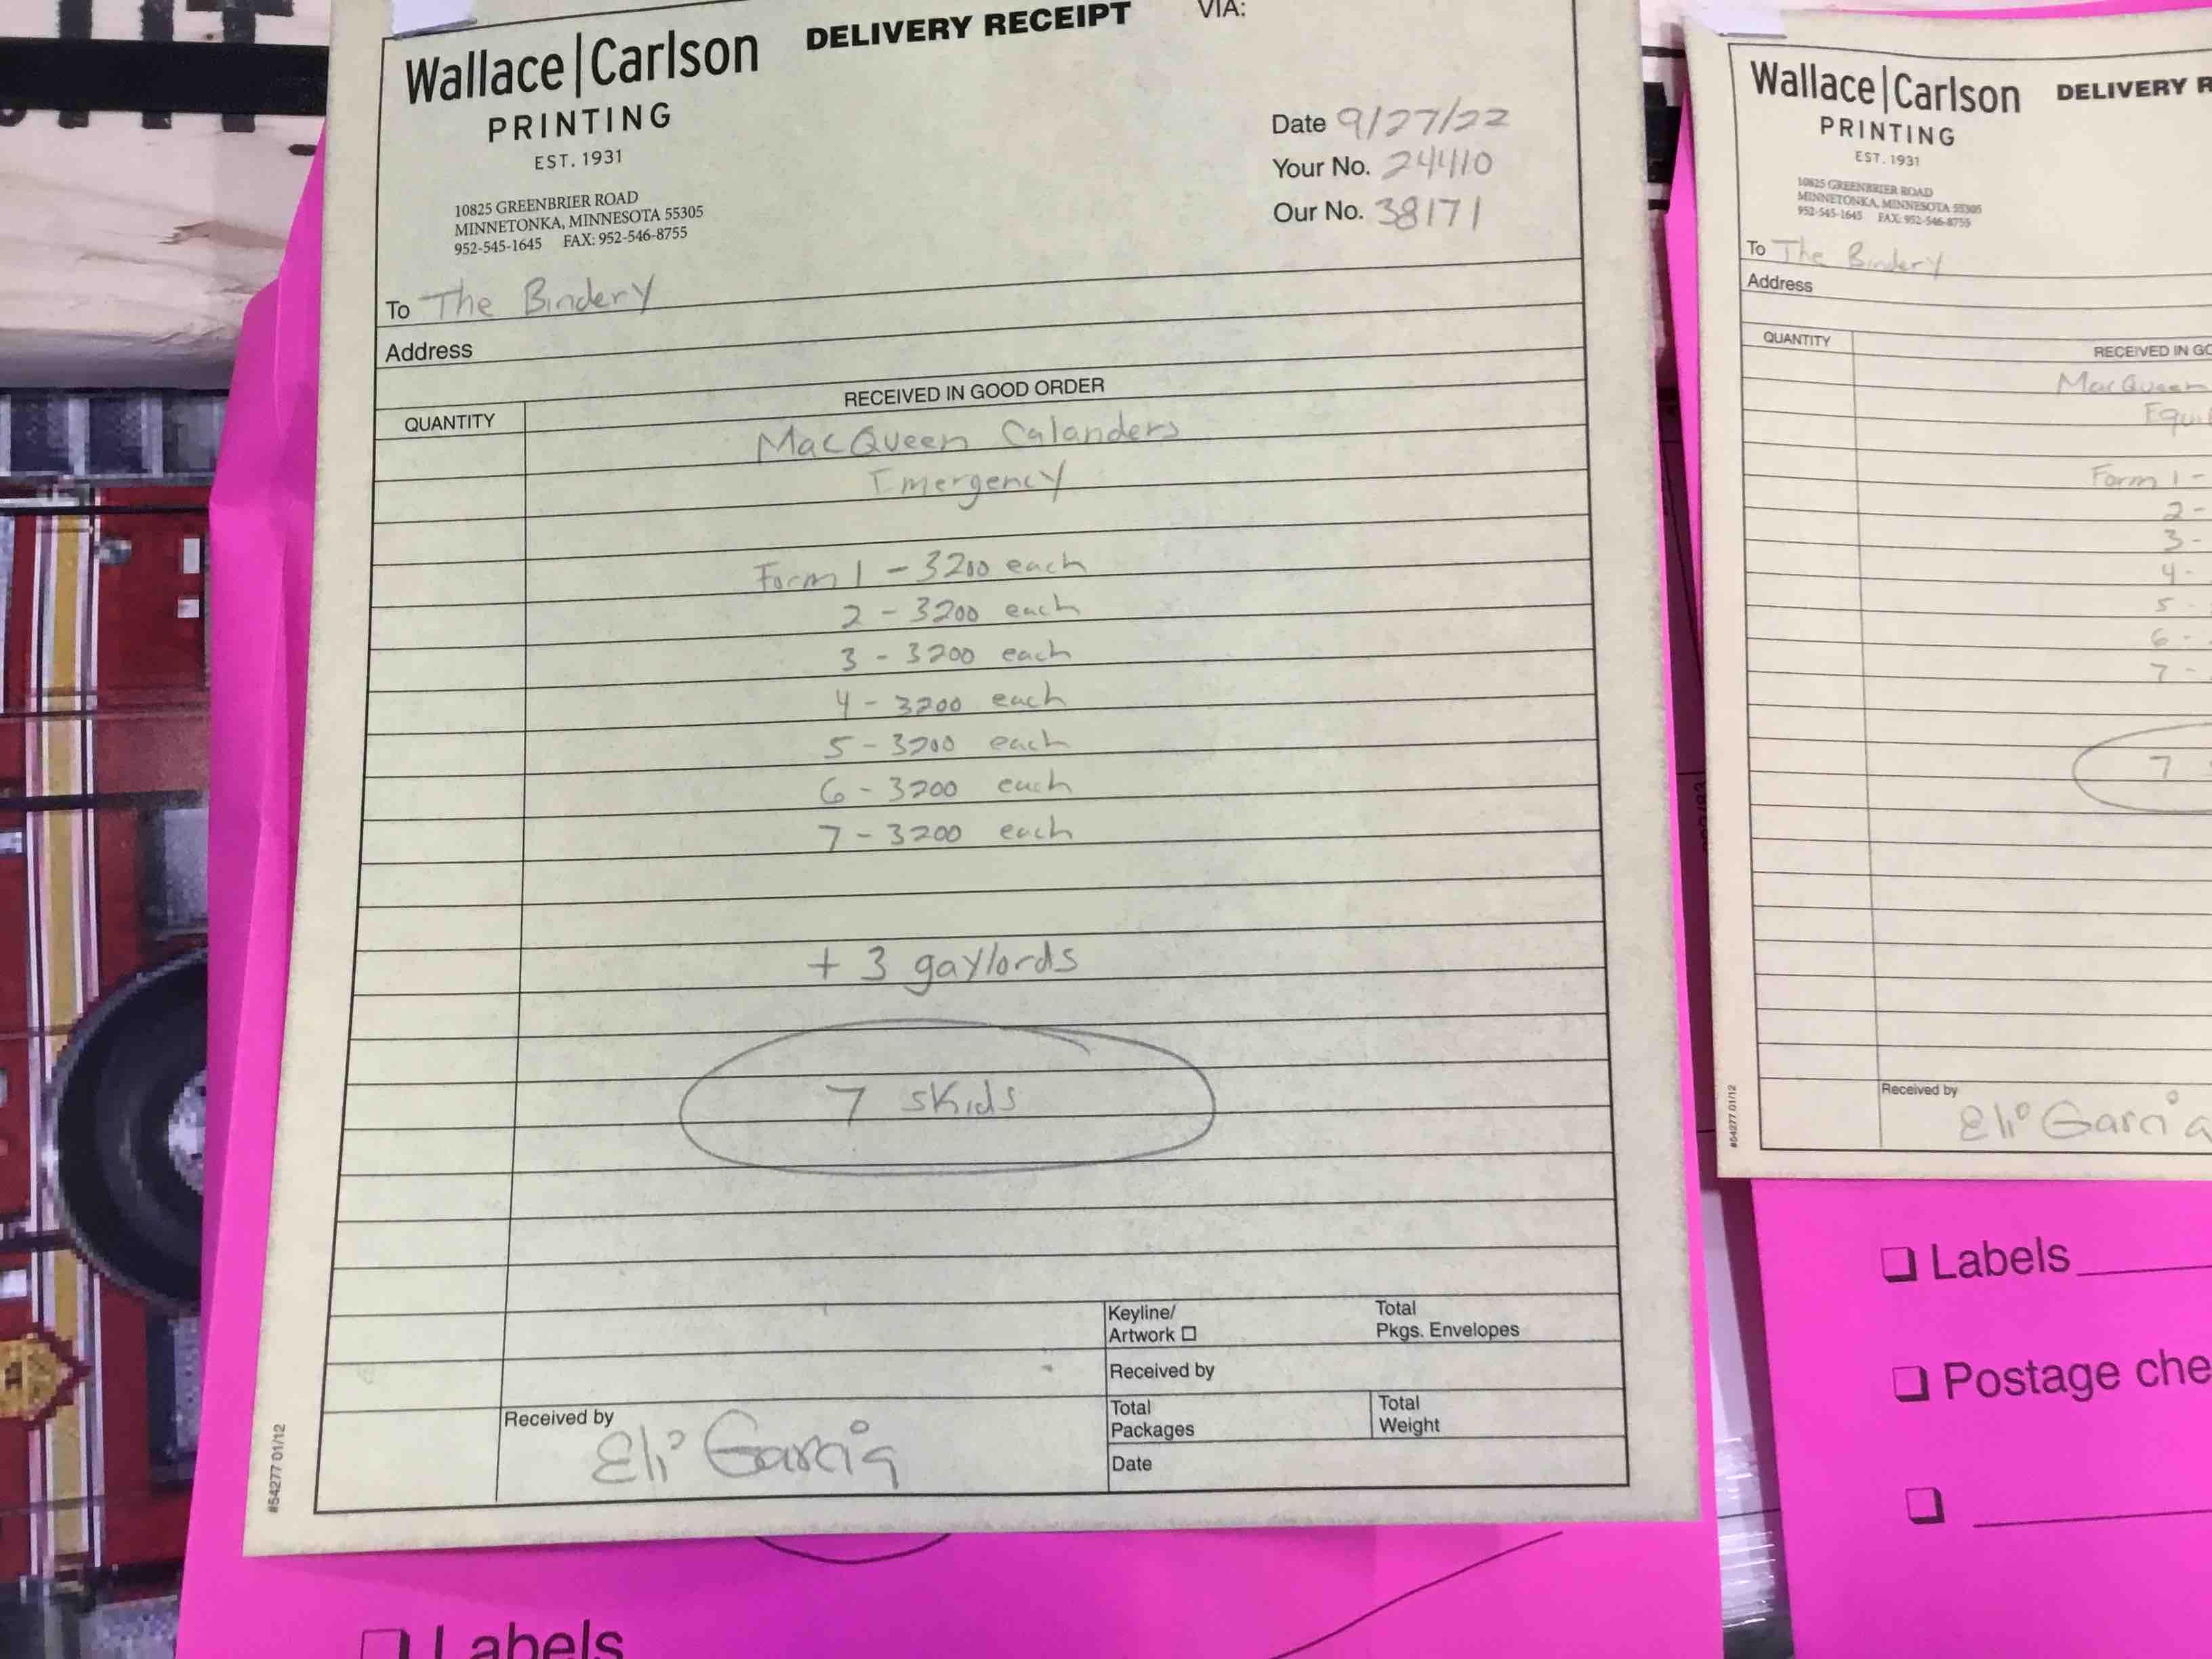 Wallace|Carlson
PRINTING
EST. 1931
10825 GREENBRIER ROAD
MINNETONKA, MINNESOTA 55305
952-545-1645 FAX: 952-546-8755
DELIVERY RECEIPT
VIA:
Date 9/27/22
Your No. 24410
Our No. 38171
To The Bindery
Address
QUANTITY
RECEIVED IN GOOD ORDER
MacQueen Calanders
Emergency
Form 1 - 3200 each
2 - 3200 each
3 - 3200 each
4 - 3200 each
5 - 3200 each
6 - 3200 each
7 - 3200 each
+ 3 gaylords
7 skids
Keyline/
Artwork
Total
Pkgs. Envelopes
Received by
Total
Packages
Total
Weight
Date
Received by
Eli Garcia
#54277 01/12
Labels
Wallace|Carlson
PRINTING
EST. 1931
10825 GREENBRIER ROAD
MINNETONKA, MINNESOTA 55305
952-545-1645 FAX: 952-546-8755
DELIVERY R
To The Bindery
Address
QUANTITY
RECEIVED IN GO
MacQueen
Equi
Form 1 -
2 -
3 -
4 -
5 -
6 -
7 -
7
Received by
Eli Garcia
#54277 01/12
Labels
Postage che